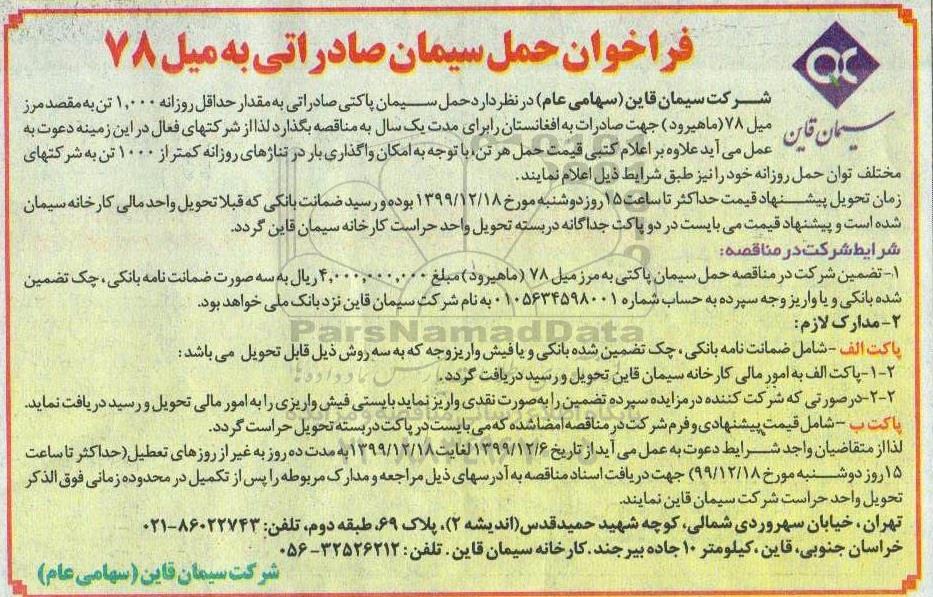 فراخوان حمل سیمان صادراتی به میل ۷۸
سیمان قاین
شرکت سیمان قاین (سهامی عام) در نظر دارد حمل سیمان پاکتی صادراتی به مقدار حداقل روزانه ۱,۰۰۰ تن به مقصد مرز
میل ۷۸ (ماهیرود) جهت صادرات به افغانستان را برای مدت یک سال به مناقصه بگذارد لذا از شرکتهای فعال در این زمینه دعوت به
عمل می آید علاوه بر اعلام کتبی قیمت حمل هر تن، با توجه به امکان واگذاری بار در تناژهای روزانه کمتر از ۱۰۰۰ تن به شرکتهای
مختلف توان حمل روزانه خود را نیز طبق شرایط ذیل اعلام نمایند.
زمان تحویل پیشنهاد قیمت حداکثر تا ساعت ۱۵ روز دوشنبه مورخ ۱۳۹۹/۱۲/۱۸ بوده و رسید ضمانت بانکی که قبلا تحویل واحد مالی کارخانه سیمان
شده است و پیشنهاد قیمت می بایست در دو پاکت جداگانه دربسته تحویل واحد حراست کارخانه سیمان قاین گردد.
شرایط شرکت در مناقصه:
۱- تضمین شرکت در مناقصه حمل سیمان پاکتی به مرز میل ۷۸ (ماهیرود) مبلغ ۴,۰۰۰,۰۰۰,۰۰۰ ریال به سه صورت ضمانت نامه بانکی، چک تضمین
شده بانکی و یا واریز وجه سپرده به حساب شماره ۰۱۰۵۶۳۴۵۹۸۰۰۱ به نام شرکت سیمان قاین نزد بانک ملی خواهد بود.
ParsNamadData
۲- مدارک لازم:
پاکت الف - شامل ضمانت نامه بانکی، چک تضمین شده بانکی و یا فیش واریز وجه که به سه روش ذیل قابل تحویل می باشد:
۱-۲- پاکت الف به امور مالی کارخانه سیمان قاین تحویل و رسید دریافت گردد.
۲-۲- در صورتی که شرکت کننده در مزایده سپرده تضمین را به صورت نقدی واریز نماید بایستی فیش واریزی را به امور مالی تحویل و رسید دریافت نماید.
پاکت ب - شامل قیمت پیشنهادی و فرم شرکت در مناقصه امضا شده که می بایست در پاکت دربسته تحویل حراست گردد.
لذا از متقاضیان واجد شرایط دعوت به عمل می آید از تاریخ ۱۳۹۹/۱۲/۶ لغایت ۱۳۹۹/۱۲/۱۸ به مدت ده روز به غیر از روزهای تعطیل (حداکثر تا ساعت
۱۵ روز دوشنبه مورخ ۹۹/۱۲/۱۸) جهت دریافت اسناد مناقصه به آدرسهای ذیل مراجعه و مدارک مربوطه را پس از تکمیل در محدوده زمانی فوق الذکر
تحویل واحد حراست شرکت سیمان قاین نمایند.
تهران، خیابان سهروردی شمالی، کوچه شهید حمید قدس (اندیشه ۲)، پلاک ۶۹، طبقه دوم، تلفن: ۸۶۰۲۲۷۴۳-۰۲۱
خراسان جنوبی، قاین، کیلومتر ۱۰ جاده بیرجند. کارخانه سیمان قاین. تلفن: ۳۲۵۲۶۲۱۲-۰۵۶
شرکت سیمان قاین (سهامی عام)